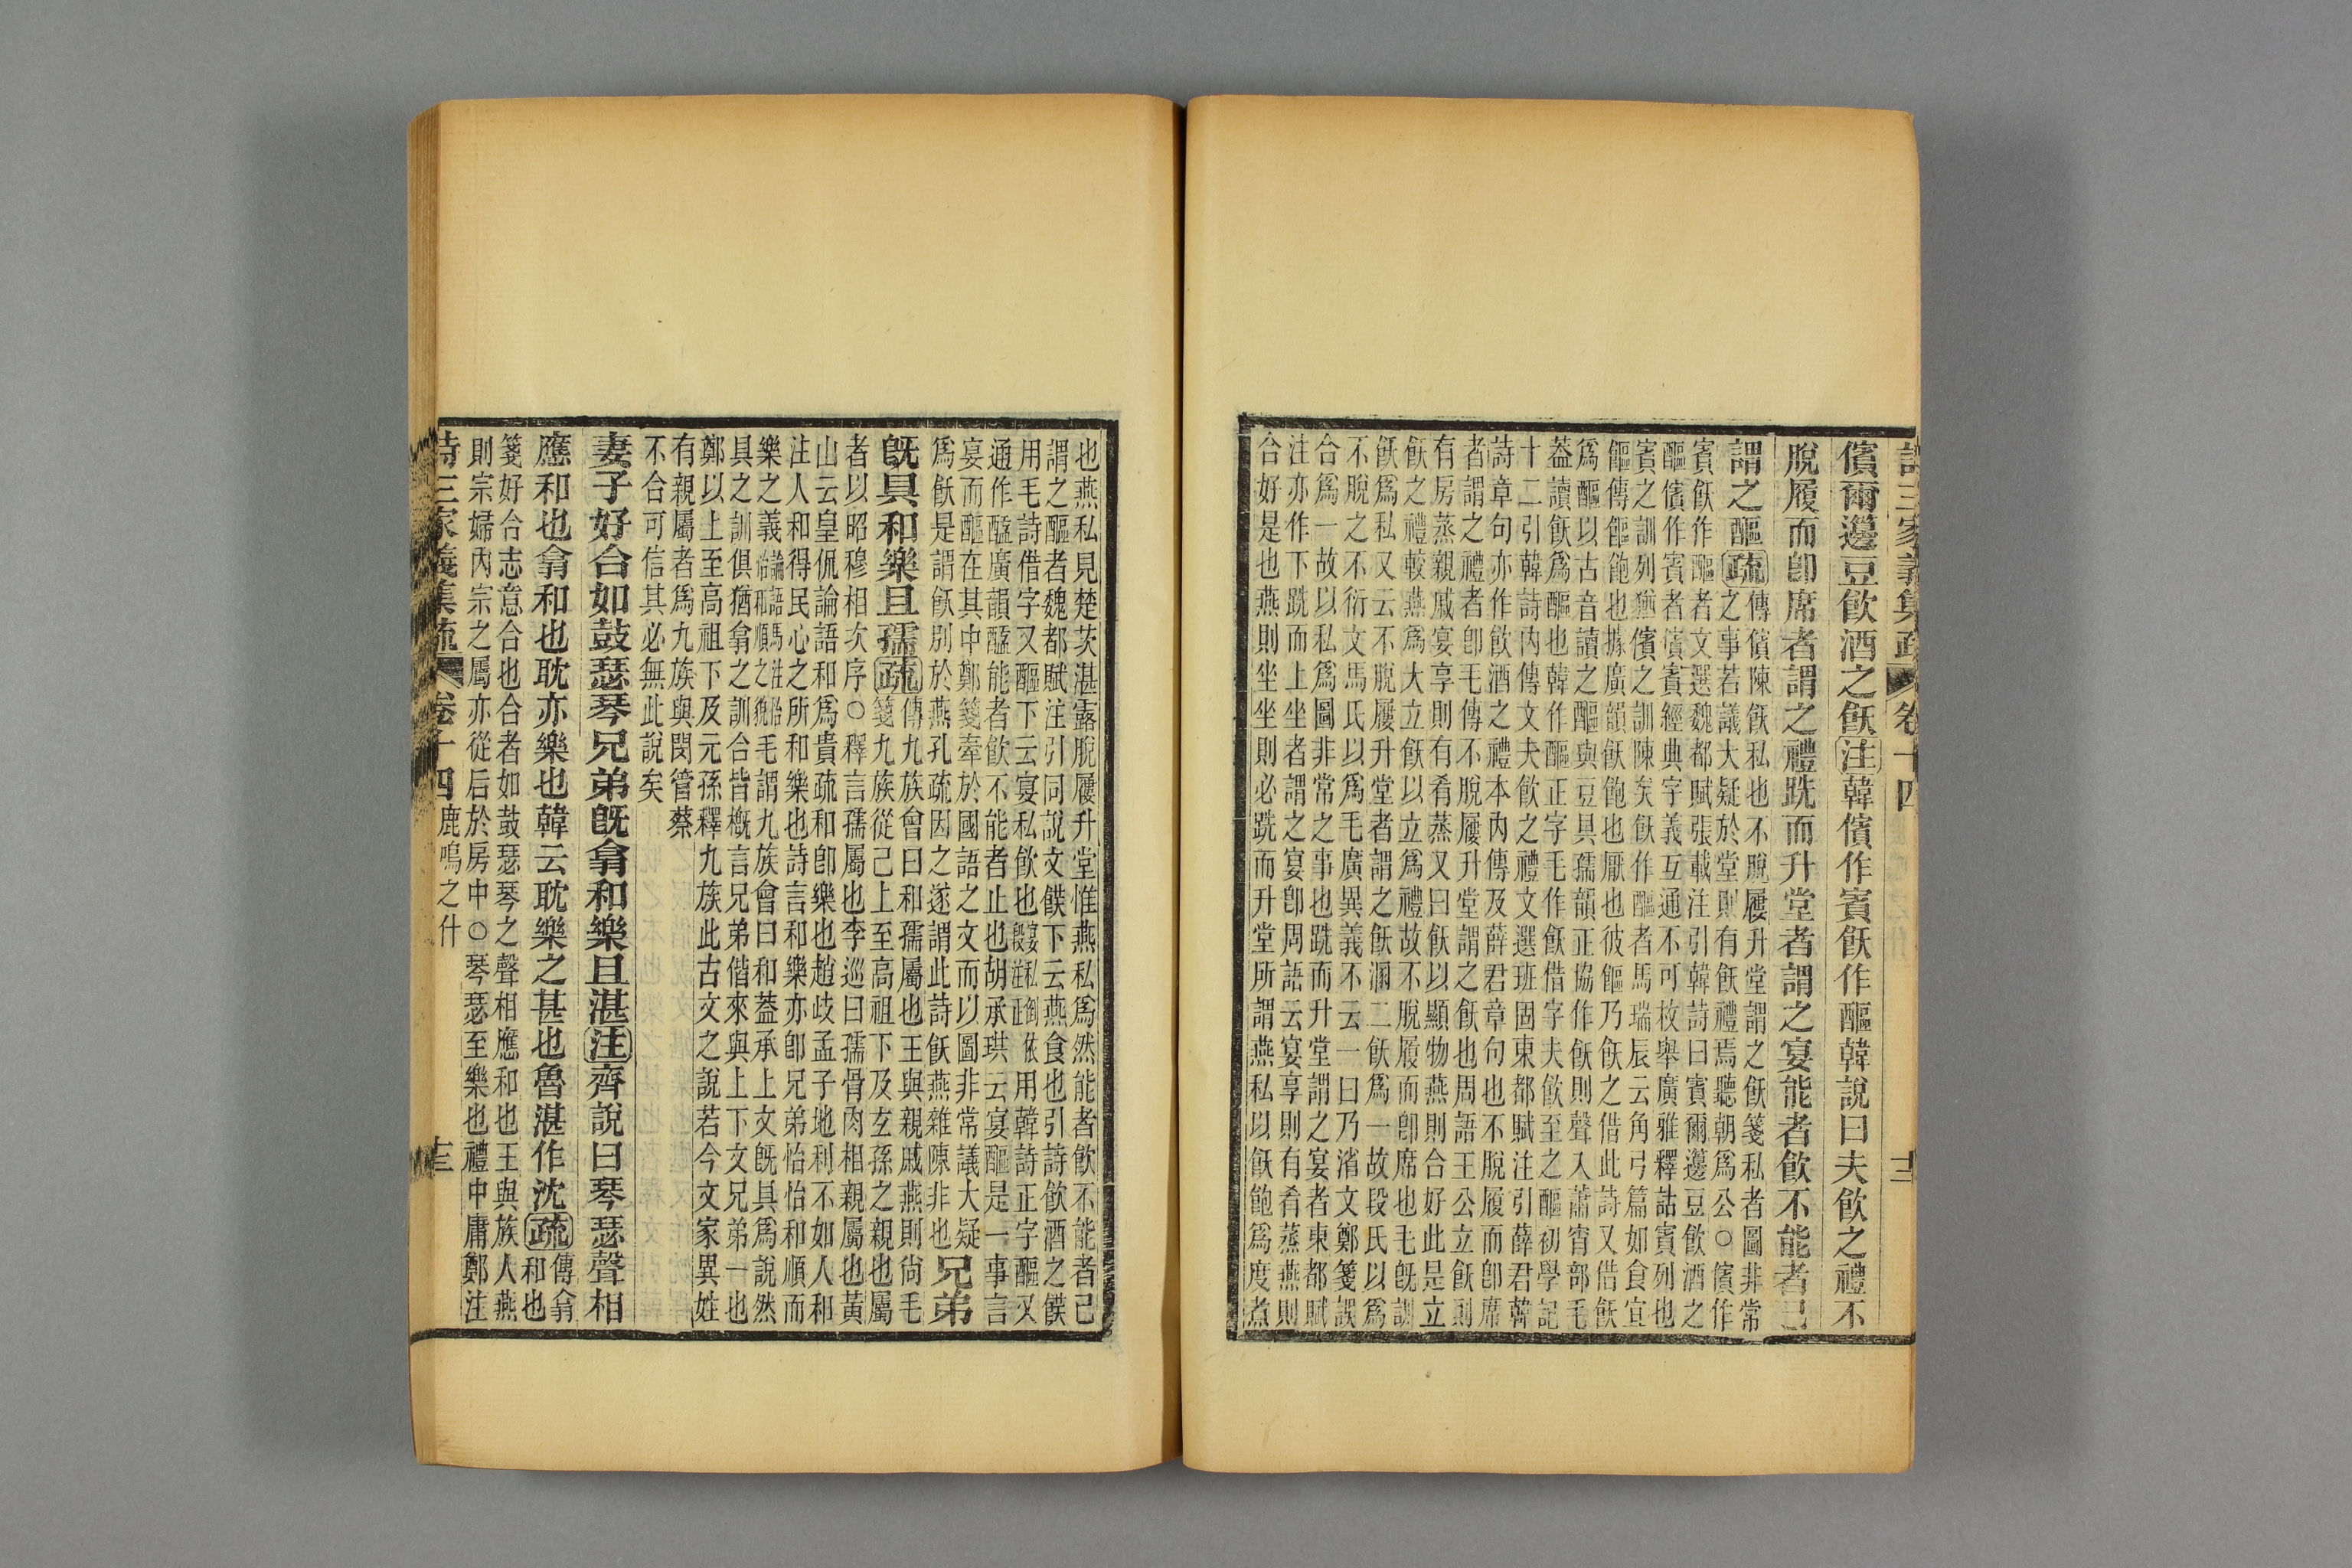 詩三家義集疏 卷十四 十二
儐爾籩豆飲酒之飫注韓儐作賓飫作醧韓說曰夫飲之禮不
脫履而卽席者謂之禮跣而升堂者謂之宴能者飲不能者已
謂之醧疏傳儐陳飫私也不脫屨升堂謂之飫箋私者圖非常
之事若議大疑於堂則有飫禮焉聽朝爲公○儐作
賓飫作醧者文選魏都賦張載注引韓詩曰賓爾籩豆飲酒之
醧儐作賓者儐賓經典字義互通不可枚舉廣雅釋詁賓列也
賓之訓列猶儐之訓陳矣飫作醧者馬瑞辰云角弓篇如食宜
饇傳饇飽也據廣韻飫飽也厭也彼饇乃飫之借此詩又借飫
爲醧以古音讀之醧與豆具孺韻正協作飫則聲入蕭宵部毛
葢讀飫爲醧也韓作醧正字毛作飫借字夫飲至之醧初學記
十二引韓詩內傳文夫飲之禮文選班固東都賦注引薛君韓
詩章句亦作飲酒之禮本內傳及薛君章句也不脫履而卽席
者謂之禮者卽毛傳不脫屨升堂謂之飫也周語王公立飫則
有房蒸親戚宴享則有肴蒸又曰飫以顯物燕則合好此是立
飫之禮較燕爲大立飫以立爲禮故不脫履而卽席也毛旣訓
飫爲私又云不脫屨升堂者謂之飫溷二飫爲一故段氏以爲
不脫之不衍文馬氏以爲毛廣異義不云一曰乃淆文鄭箋誤
合爲一故以私爲圖非常之事也跣而升堂謂之宴者東都賦
注亦作下跣而上坐者謂之宴卽周語云宴享則有肴蒸燕則
合好是也燕則坐坐則必跣而升堂所謂燕私以飫飽爲度煮
也燕私見楚茨湛露脫屨升堂惟燕私爲然能者飲不能者已
謂之醧者魏都賦注引同說文饫下云燕食也引詩飲酒之饫
用毛詩借字又醧下云宴私飲也段注宴私倒依正用韓詩正字醧又
通作醧廣韻醧能者飲不能者止也胡承珙云宴醧是一事言
宴而醧在其中鄭箋牽於國語之文而以圖非常議大疑
爲飫是謂飫別於燕孔疏因之遂謂此詩飫燕雜陳非也兄弟
旣具和樂且孺疏傳九族會曰和孺屬也王與親戚燕則尙毛
箋九族從己上至高祖下及玄孫之親也屬
者以昭穆相次序○釋言孺屬也李巡曰孺骨肉相親屬也黃
山云皇侃論語和爲貴疏和卽樂也趙歧孟子地利不如人和
注人和得民心之所和樂也詩言和樂亦卽兄弟怡怡和順而
樂之義論語馬注怡怡和順之貌毛謂九族會曰和葢承上文旣具爲說然
具之訓俱猶翕之訓合皆槪言兄弟偕來與上下文兄弟一也
鄭以上至高祖下及元孫釋九族此古文之說若今文家異姓
有親屬者爲九族與閔管蔡
不合可信其必無此說矣
妻子好合如鼓瑟琴兄弟旣翕和樂且湛注齊說曰琴瑟聲相
應和也翕和也耽亦樂也韓云耽樂之甚也魯湛作沈疏傳翕
和也
箋好合志意合也合者如鼓瑟琴之聲相應和也王與族人燕
則宗婦內宗之屬亦從后於房中○琴瑟至樂也禮中庸鄭注
詩三家義集疏 卷十四 鹿鳴之什 十三